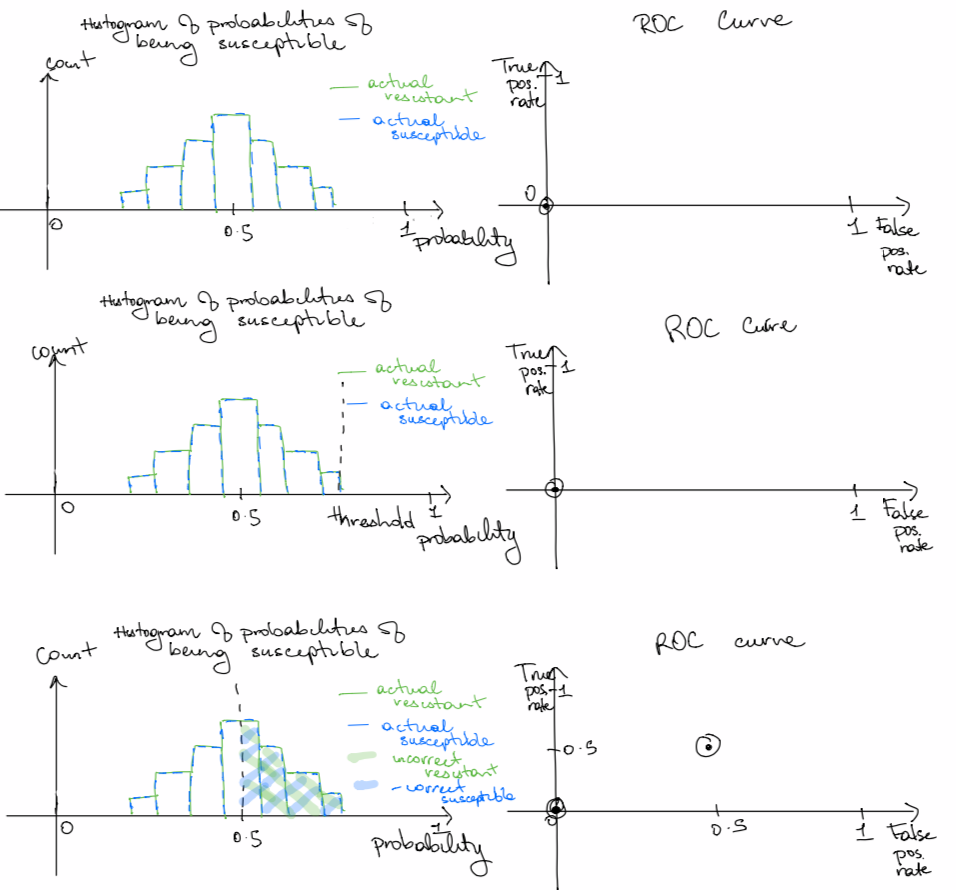 Histogram of probabilities of
being susceptible
count
actual
resistant
actual
susceptible
0
0.5
1
probability
ROC Curve
True
pos.
rate
1
0
1
False
pos.
rate
Histogram of probabilities of
being susceptible
count
actual
resistant
actual
susceptible
0
0.5
threshold
1
probability
ROC Curve
True
pos.
rate
1
1
False
pos.
rate
Histogram of probabilities of
being susceptible
Count
actual
resistant
actual
susceptible
incorrect
resistant
correct
susceptible
0
0.5
1
probability
ROC curve
True
pos.
rate
1
0.5
0
0.5
1
False
pos.
rate